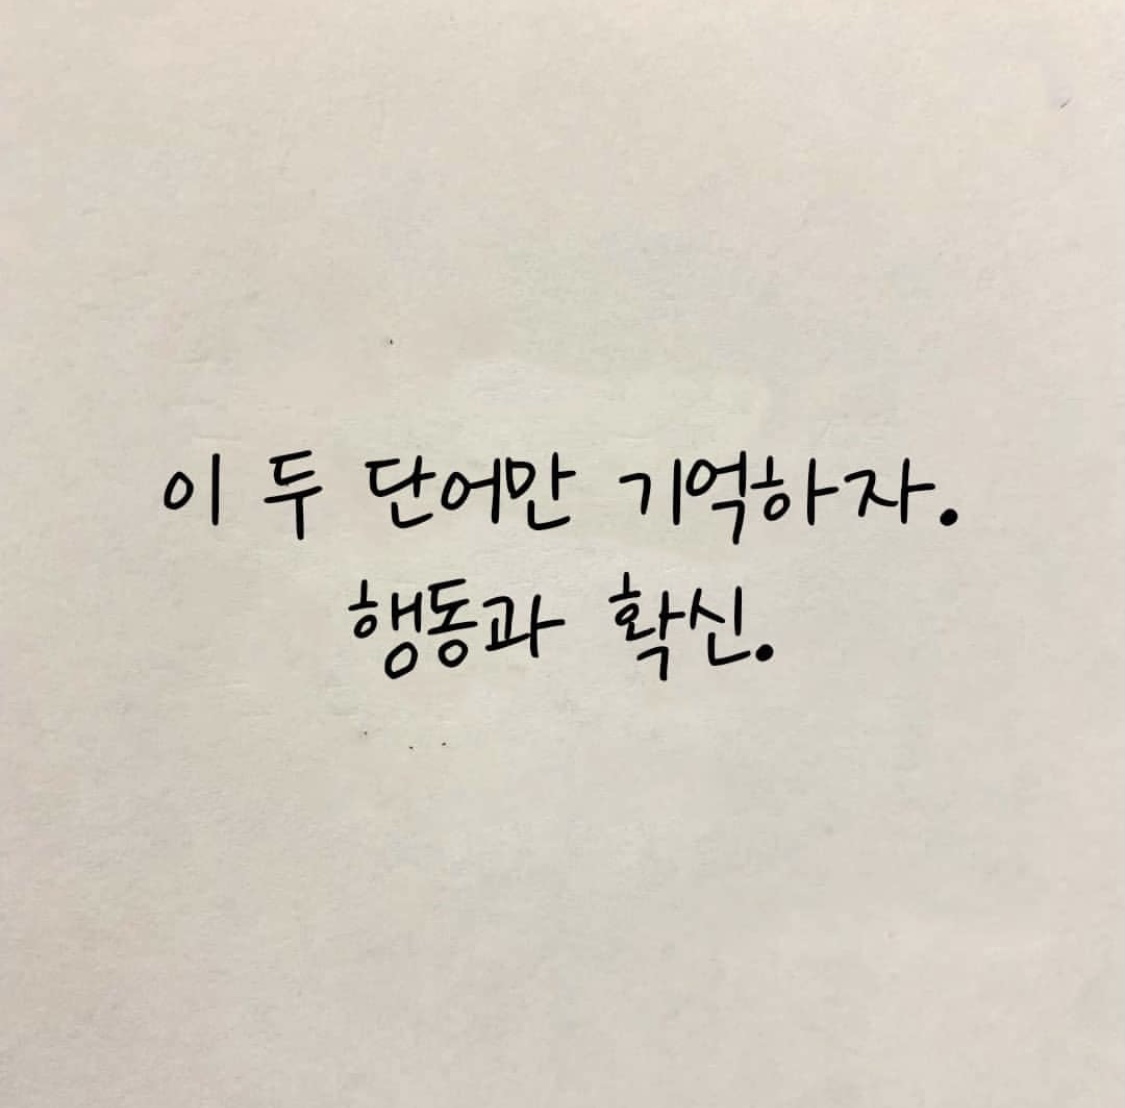 이 두 단어만 기억하자.
행동과 확신.